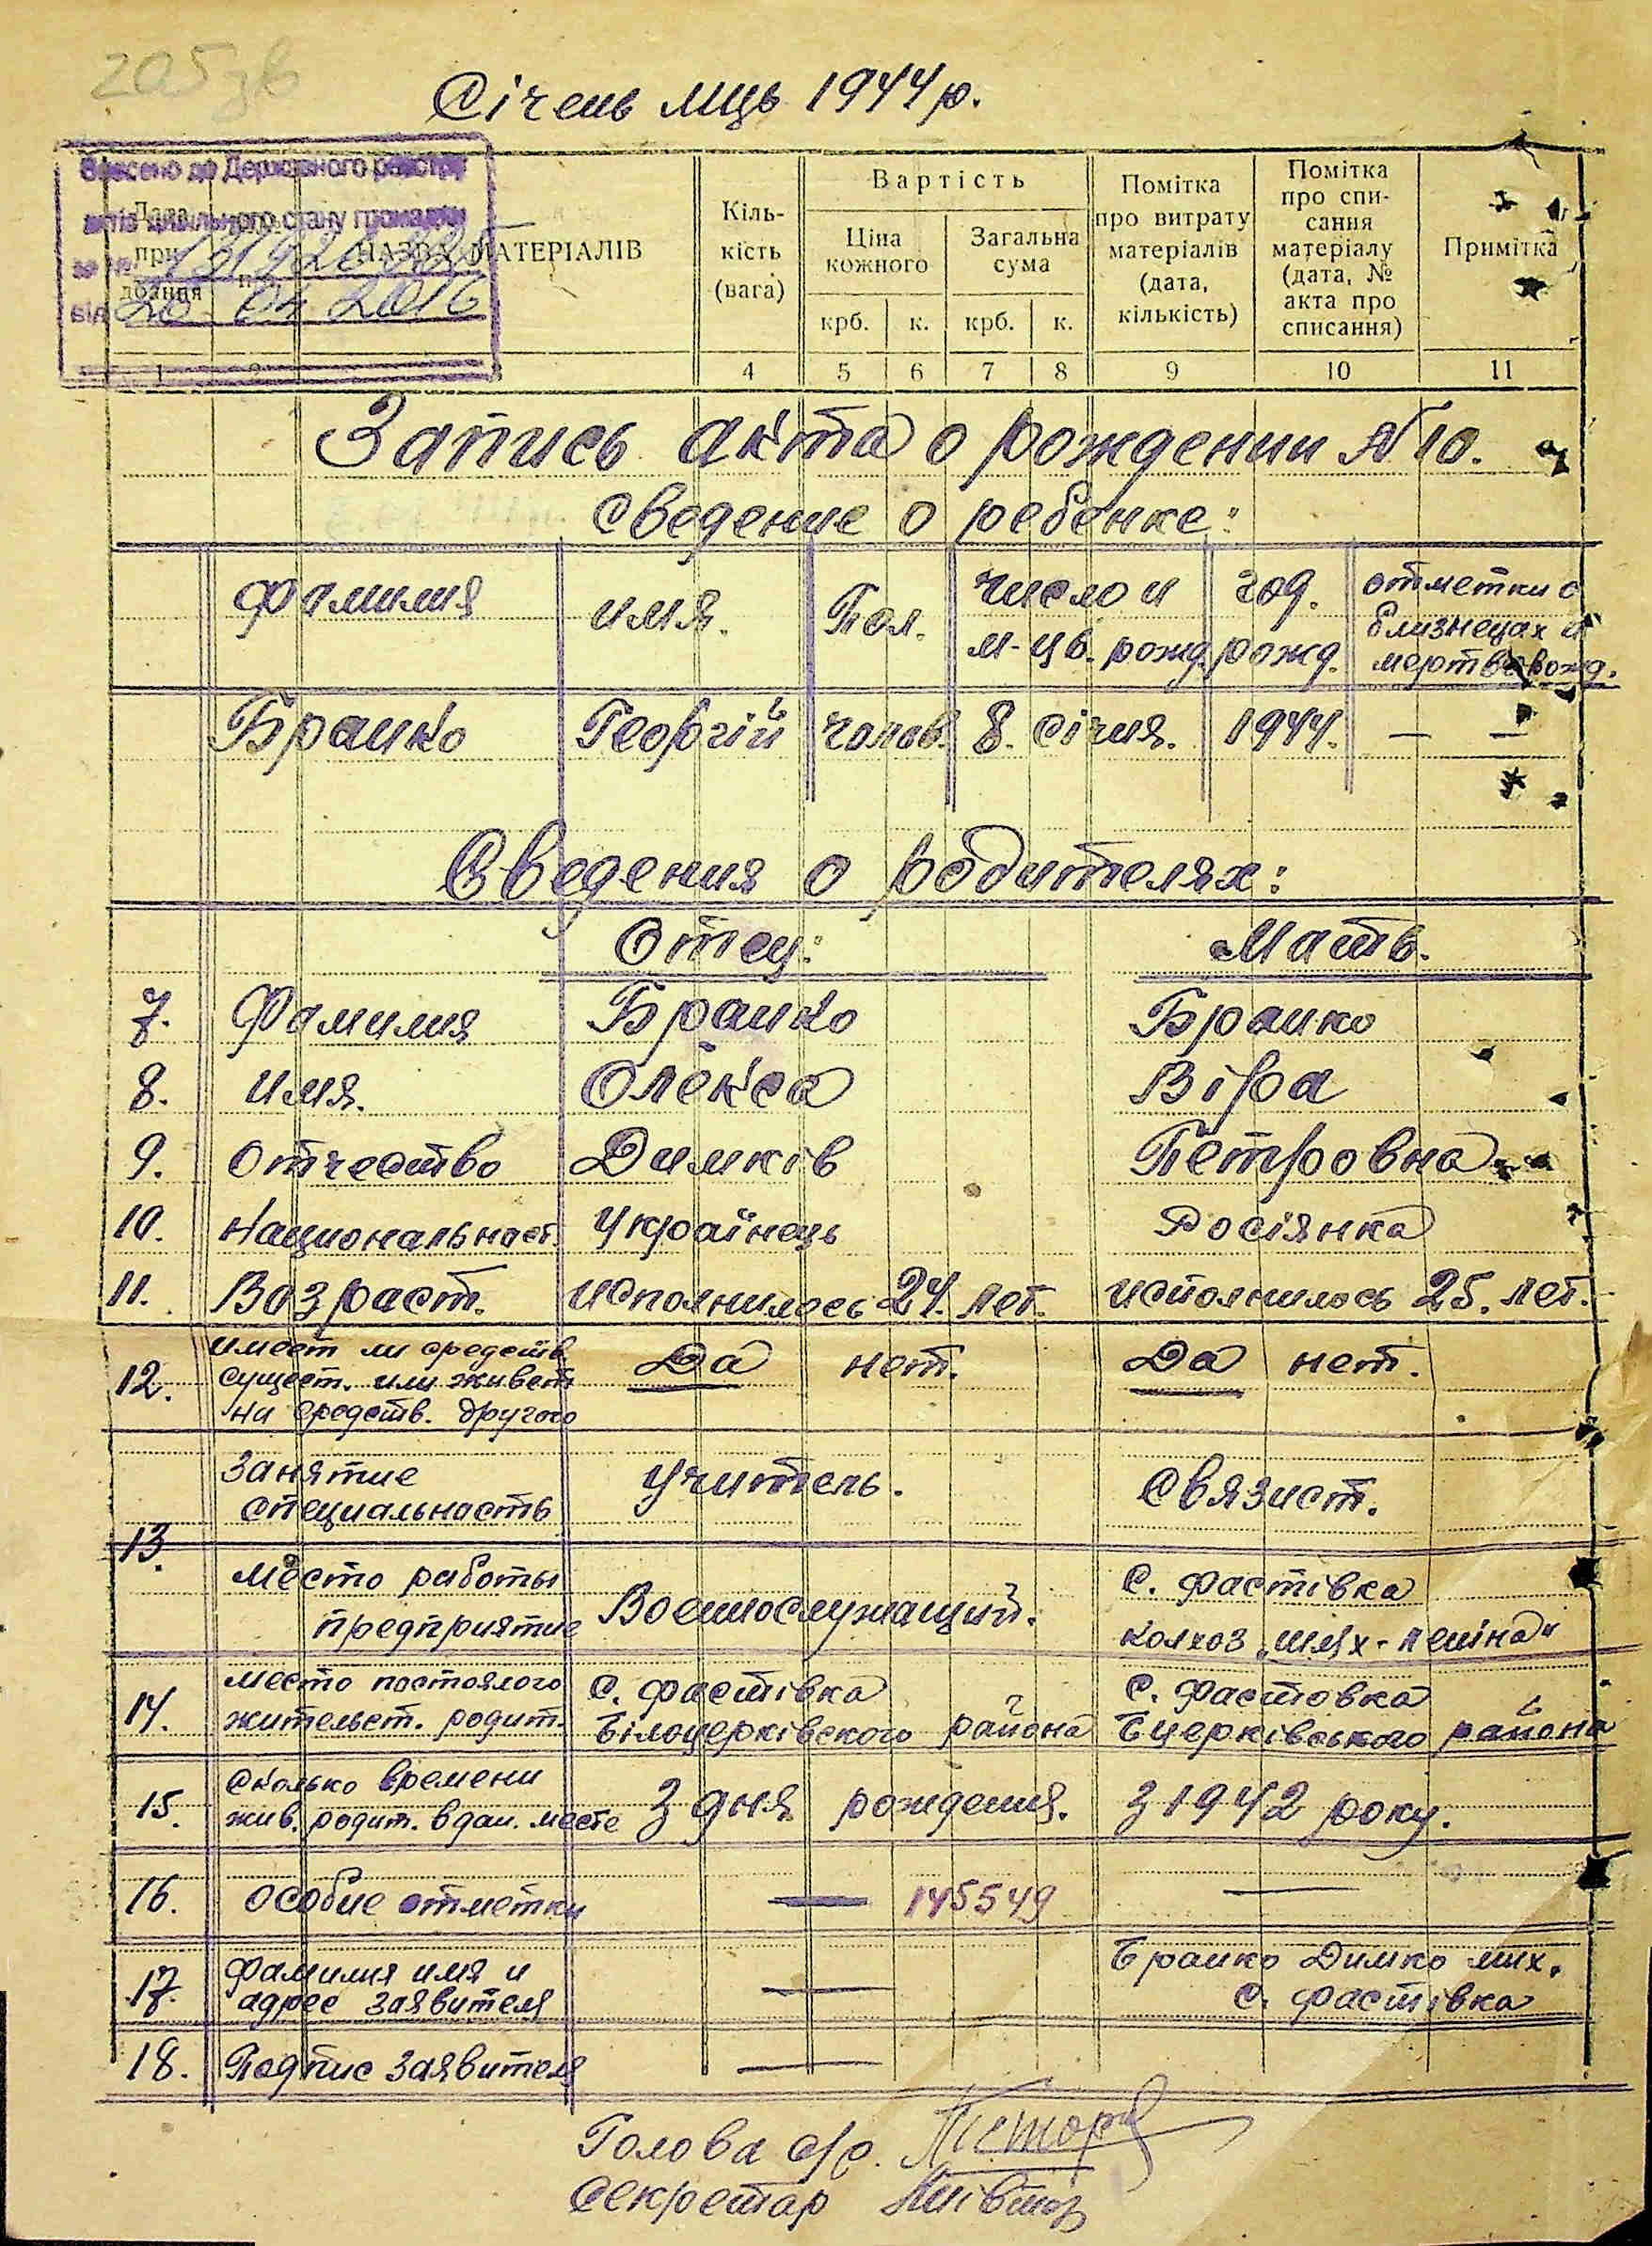 Січень мць 1944 р.
Внесено до Державного реєстру
актів цивільного стану громадян
від 20 04 2016
Дата придбання
НАЗВА МАТЕРІАЛІВ
Кількість (вага)
Вартість
Ціна кожного
Загальна сума
крб. к. крб. к.
Помітка про витрату матеріалів (дата, кількість)
Помітка про списання матеріалу (дата, № акта про списання)
Примітка
1 2 3 4 5 6 7 8 9 10 11
Запись акта о рождении №10.
Сведение о ребенке:
Фамилия имя. Пол. число и м-цъ. рожд. год. рожд. отметки о близнецах и мертворожд.
Бранко Георгій чолов. 8. січня. 1944. — —
Сведения о родителях:
Отец: Мать.
7. Фамилия Бранко Бранко
8. имя. Олекса Віра
9. Отчество Димків Петровна
10. Национальност. Українець Росіянка
11. Возраст. исполнилось 24. лет. исполнилось 25. лет.
12. имеет ли средств. сущест. или живет на средств. другого Да нет. Да нет.
13. Занятие специальность учитель. связист.
Место работы предприятие Военнослужащий. С. Фастівка колхоз „шлях-леніна"
14. место постоялого жительст. родит. С. Фастівка Білоцерківского района С. Фастовка Бцерківського района
15. Сколько времени жив. родит. в дан. месте З дня рождения. З 1942 року.
16. особие отметки — 145549 —
17. Фамилия имя и адрес заявителя — Бранко Димко мих. С. Фастівка
18. Подпис заявителя —
Голова с/р.
Секретар